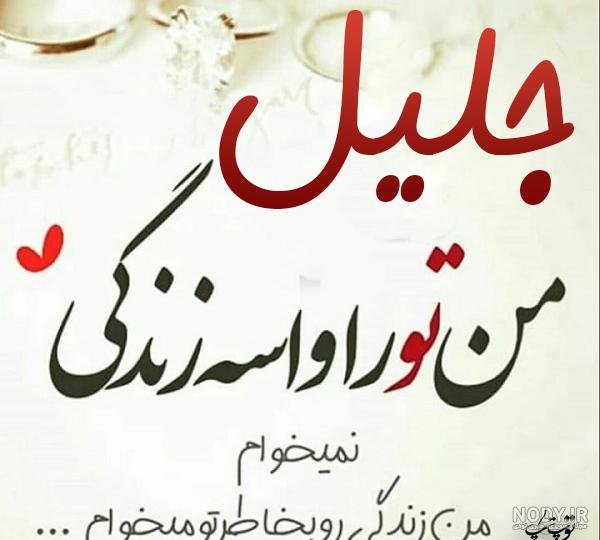 جلیل
من تو را واسه زندگی
نمیخوام
من زندگی رو بخاطر تو میخوام ...
NODY.IR